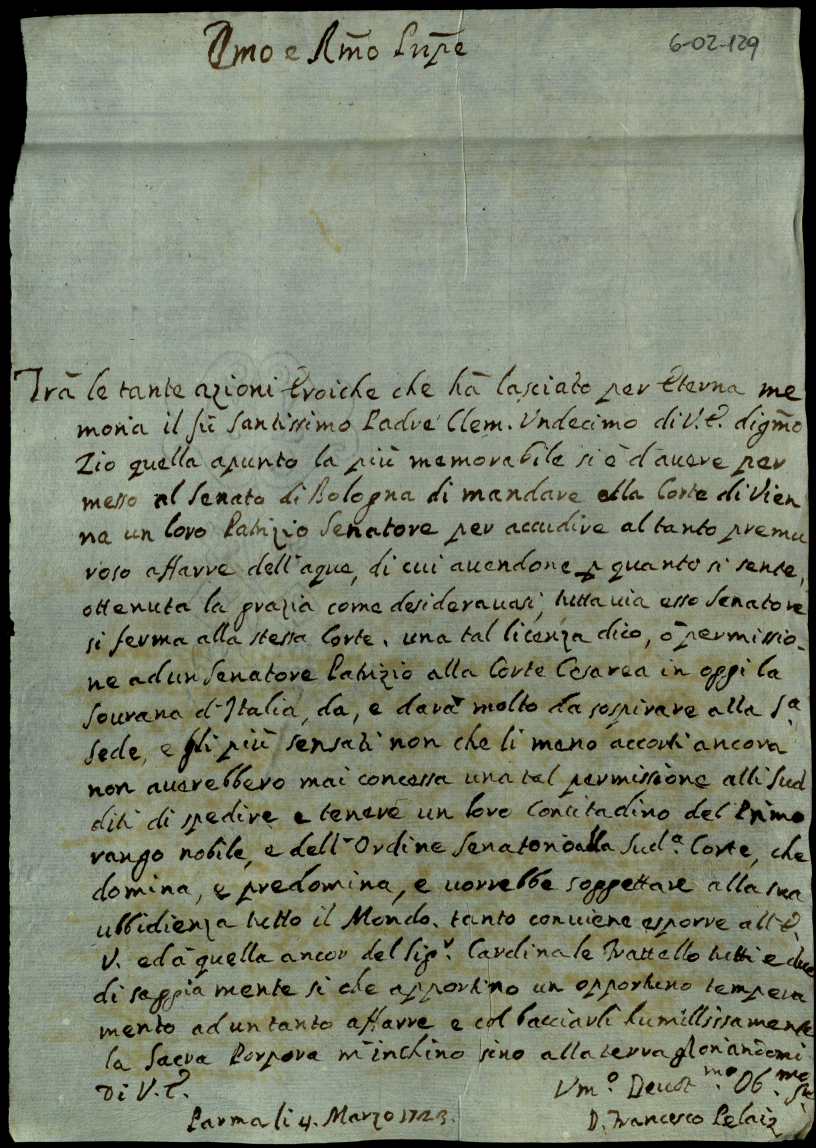 Em̃o e Rm̃o Prñpe
6-02-129
Trà le tante azioni Eroiche che hà lasciato per Eterna me
moria il fù Santissimo Padre Clem. Undecimo di V.E. digm̃o
Zio quella apunto la più memorabile si è d'avere per
messo al Senato di Bologna di mandare alla Corte di Vien
na un loro Patrizio Senatore per accudire al tanto premu
roso affarre dell'aque, di cui avendone p quanto si sente,
ottenuta la grazia come desideravasi, tuttavia esso Senatore
si ferma alla stessa Corte. una tal licenza dico, ò permissio-
ne ad un Senatore Patrizio alla Corte Cesarea in oggi la
Sourana d'Italia, da, e darà molto da sospirare alla S.a
Sede, e gli più sensati non che li meno accorti ancora
non averebbero mai concessa una tal permissione alli Sud
diti di spedire e tenere un loro Concitadino del Primo
rango nobile, e dell'Ordine Senatorio alla Sud.a Corte, che
domina, e predomina, e vorrebbe soggettare alla sua
ubbidienza tutto il Mondo. tanto conviene esporre all'E.
V. ed à quella ancor del Sig.r Cardinale Frattello tutti e due
di saggia mente si che apportino un opportuno tempera
mento ad un tanto affarre e col bacciarli humilissamente
la Sacra Porpora m'inchino sino alla terra gloriandomi
Di V.E.
Um.o Devot.mo Ob.mo
Parma li 4. Marzo 1723.
D. Francesco Pelaiz